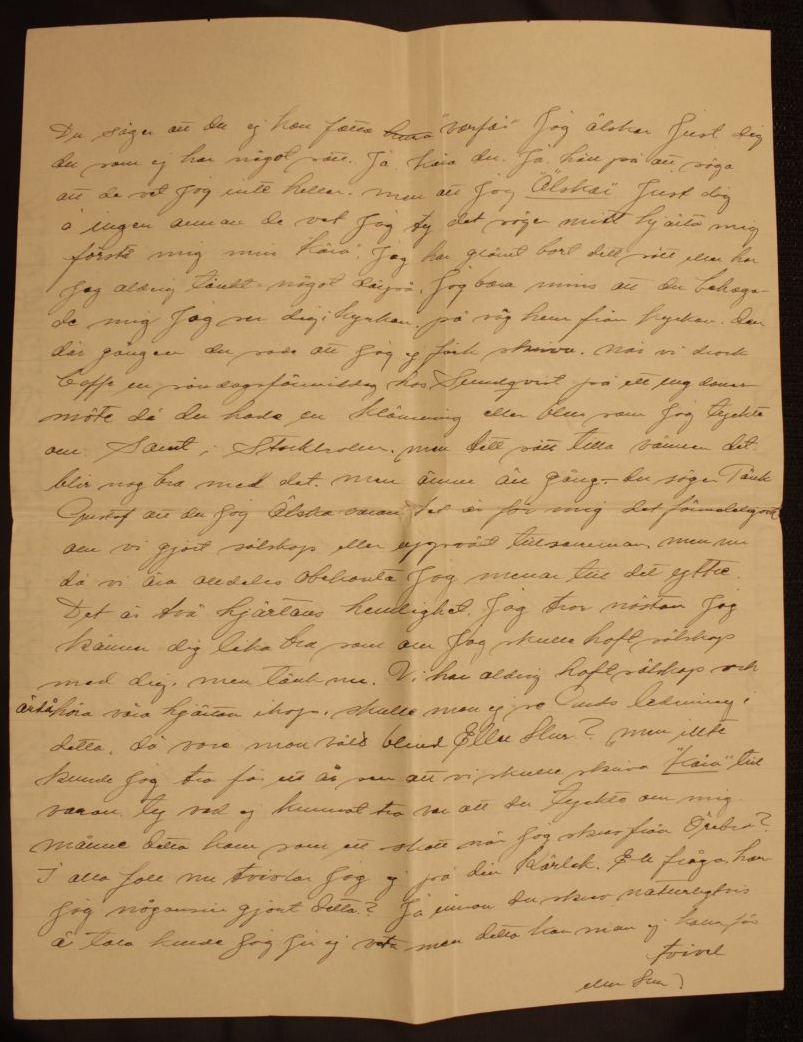 Du säger att du ej kan fatta hura "varför" Jag älskar Just dig
du som ej har något sätt. Ja kära du. Ja. håll på att säga
att de vet Jag inte heller. men att Jag "Älskar" Just dig
å ingen annan de vet Jag ty det säger mitt hjärta mig
förstå mig min "kära". Jag har glömt bort ditt sätt eller har
Jag aldrig tänkt något därpå. Jag bara minns att du behaga-
de mig Jag ser dig i kyrkan. på väg hem från kyrkan. den
där gången du sade att Jag ej fick skriva. När vi drack
Caffe en söndagsförmiddag hos Sundqvist på ett ungdoms
möte då du hade en klänning eller blus som Jag tyckte
om. Samt i Stockholm. men ditt sätt lilla vännen det
blir nog bra med det. men ännu än gång du säger Tänk
Gustaf att du Jag Älska varan det är för mig det
om vi gjort sälskap eller uppväxt tillsammans men nu
då vi ära alldeles obekanta Jag menar till det yttre.
Det är två hjärtans hemlighet. Jag tror nästan Jag
känner dig lika bra som om Jag skulle haft sälskap
med dig. men tänk nu. Vi har aldrig haft sälskap och
ändå höra våra hjärtan ihop. skulle man ej se Guds ledning i
detta. då vore man väl blind Eller Hur? men inte
kunde Jag tro för ett år sen att vi skulle skriva "kära" till
varan. ty vad ej kunnat tro var att du tyckte om mig.
månne detta kom som ett skott när Jag skrev från Örebro?
I alla fall nu tvivlar Jag ej på din Kärlek. En fråga har
Jag någonsin gjort detta? Ja innan du skrev naturligtvis
å tala kunde Jag ju ej veta men detta kan man ej kalla för
tvivel
eller Hur?